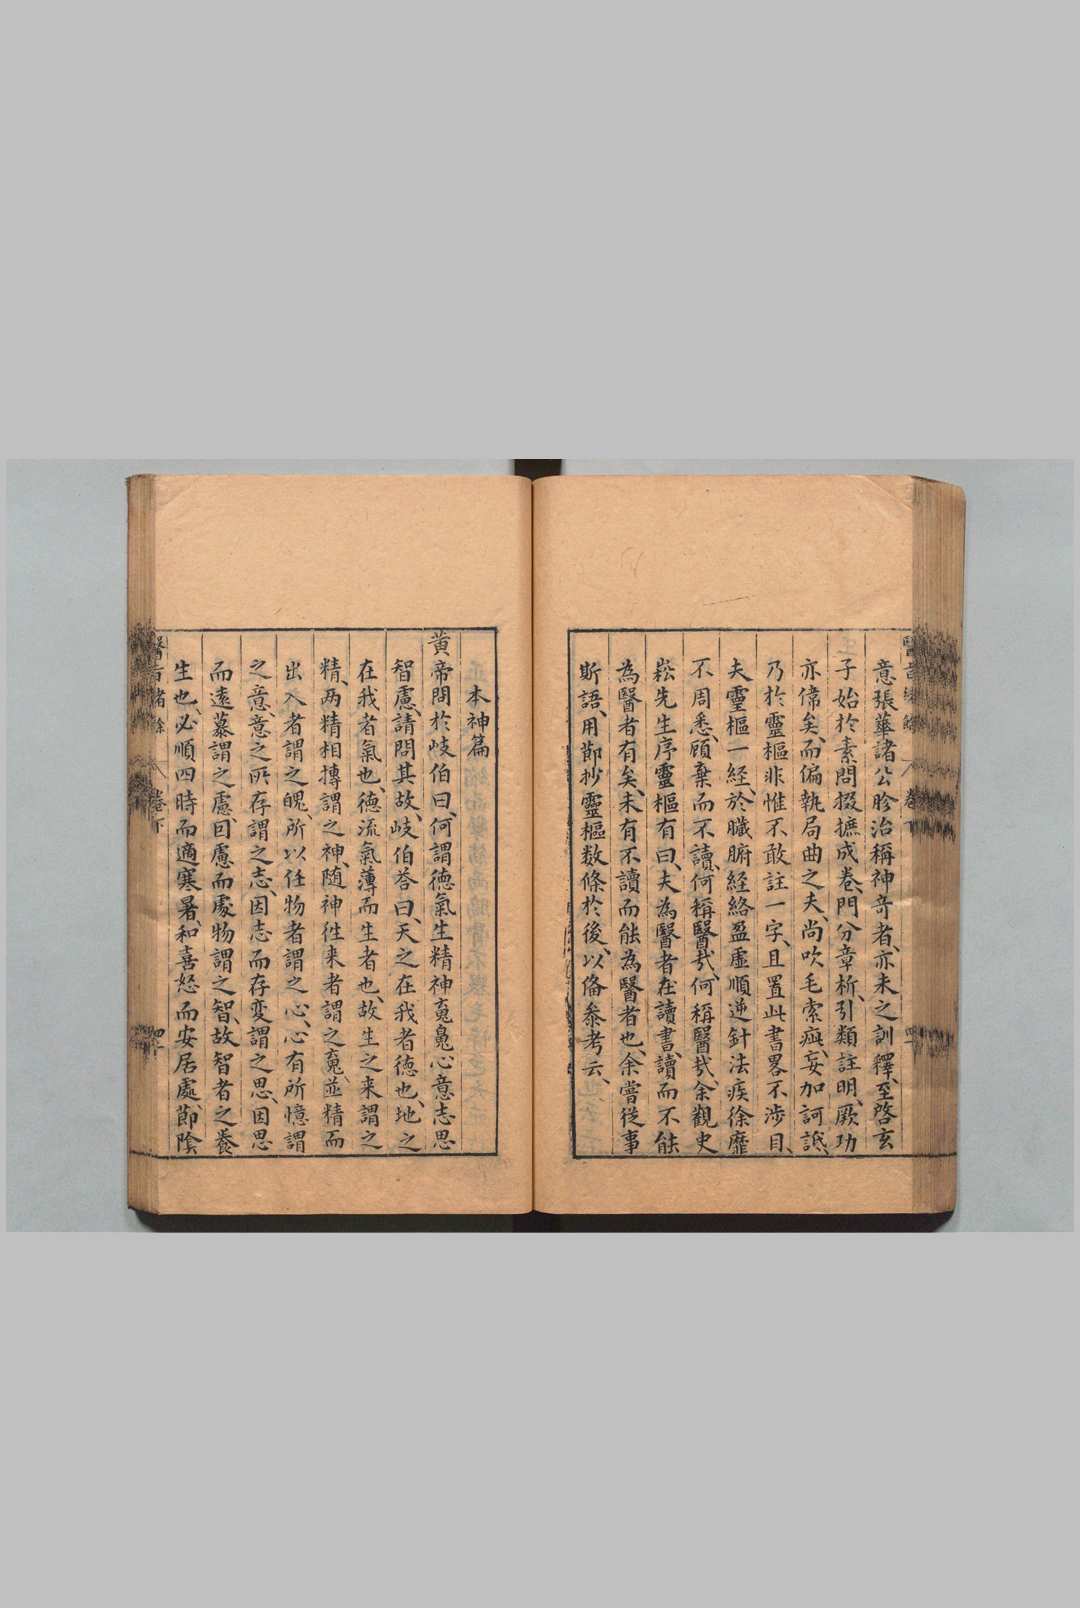 意張華諸公眕治稱神奇者、亦未之訓釋、至啓玄
子始於素問掇摭成卷、門分章析、引類註明、厥功
亦偉矣、而偏執局曲之夫、尚吹毛索疵、妄加訶詆、
乃於靈樞非惟不敢註一字、且置此書畧不渉目、
夫靈樞一経、於臓腑経絡盈虛順逆針法疾徐靡
不周悉、顧棄而不讀、何稱醫㢤、何稱醫㢤、余觀史
崧先生序靈樞有曰、夫為醫者在讀書、讀而不能
為醫者有矣、未有不讀而能為醫者也、余嘗従事
斯語、用節抄靈樞数條於後、以俻叅考云、
醫旨緒餘 卷下
本神篇
黄帝問於岐伯曰、何謂徳氣生精神䰟䰠心意志思
智慮、請問其故、岐伯荅曰、天之在我者徳也、地之
在我者氣也、徳流氣薄而生者也、故生之来謂之
精、两精相摶謂之神、随神徃来者謂之䰟、並精而
出入者謂之魄、所以任物者謂之心、心有所憶謂
之意、意之所存謂之志、因志而存変謂之思、因思
而遠慕謂之慮、囙慮而處物謂之智、故智者之養
生也、必順四時而適寒暑、和喜怒而安居處、節陰
醫旨緒餘 卷下